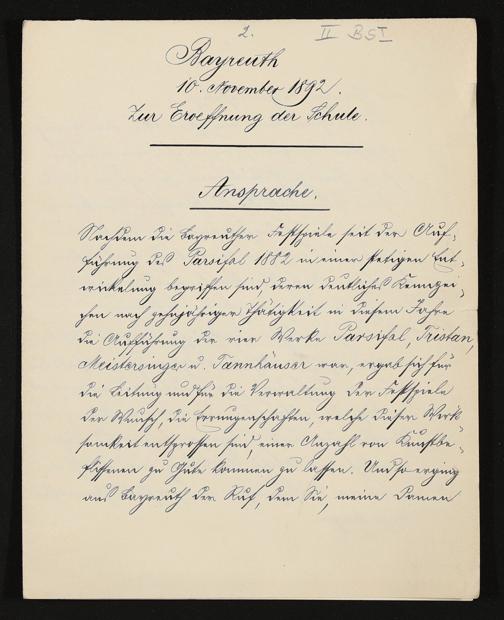 2.
II BST
Bayreuth
10. November 1892.
Zur Eroeffnung der Schule.
Ansprache.
Nachdem die Bayreuther Festspiele seit der Auf-
führung des Parsifal 1882 in einer stetigen Ent-
wickelung begriffen sind, deren deutliches Kennzei-
chen nach zehnjähriger Thätigkeit in diesem Jahre
die Aufführung der vier Werke Parsifal, Tristan,
Meistersinger u. Tannhäuser war, ergab sich für
die Leitung und für die Verwaltung der Festspiele
der Wunsch, die Errungenschaften, welche dieser Werk-
samkeit entsprossen sind, einer Anzahl von Kunstbe-
flissenen zu Gute kommen zu lassen. Und so erging
aus Bayreuth der Ruf, dem Sie, meine Damen